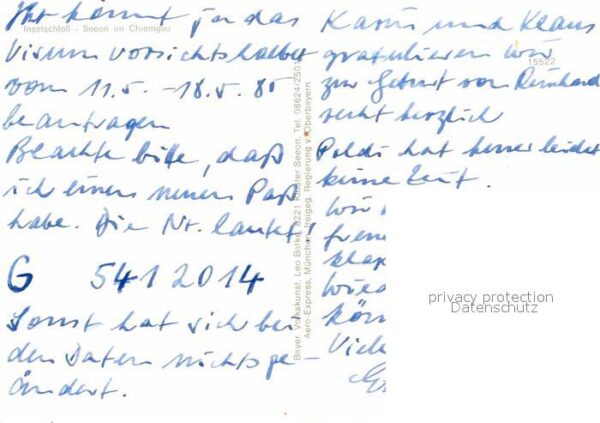 Ihr könnt ja das
Visum vorsichtshalber
vom 11.5. - 18.5. 80
beantragen
Beachte bitte, daß
ich einen neuen Paß
habe. Die Nr. lautet!
G 5412014
Sonst hat sich bei
den Daten nichts ge-
ändert.
Inselschloß - Seeon im Chiemgau
Bayer. Volkskunst, Leo Botke, 8221 Kloster Seeon, Tel. 08624/2501
Aero-Express, München, freigeg. Regierung v. Oberbayern
15522
Karin und Klaus
gratulieren wir
zur Geburt von Reinhard
recht herzlich
Poldi hat immer leider
keine Zeit.
Wir
könn
Viele
privacy protection
Datenschutz